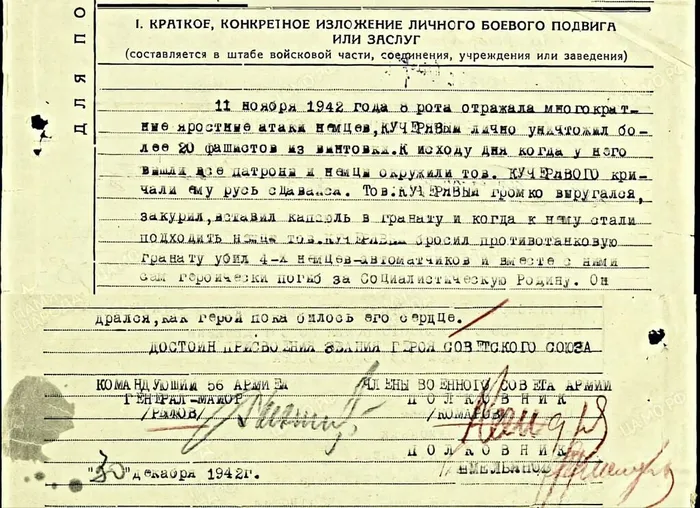 ДЛЯ ПО
I. КРАТКОЕ, КОНКРЕТНОЕ ИЗЛОЖЕНИЕ ЛИЧНОГО БОЕВОГО ПОДВИГА
ИЛИ ЗАСЛУГ
(составляется в штабе войсковой части, соединения, учреждения или заведения)
11 ноября 1942 года 8 рота отражала многократ-
ные яростные атаки немцев, КУЧЕРЯВЫЙ лично уничтожил бо-
лее 20 фашистов из винтовки. К исходу дня когда у него
вышли все патроны и немцы окружили тов. КУЧЕРЯВОГО кри-
чали ему русь сдавайся. Тов. КУЧЕРЯВЫЙ громко выругался,
закурил, вставил капсюль в гранату и когда к нему стали
подходить немцы тов. КУЧЕРЯВЫЙ бросил противотанковую
гранату убил 4-х немцев-автоматчиков и вместе с ними
сам героически погиб за Социалистическую Родину. Он
дрался, как герой пока билось его сердце.
ДОСТОИН ПРИСВОЕНИЯ ЗВАНИЯ ГЕРОЯ СОВЕТСКОГО СОЮЗА
КОМАНДУЮЩИЙ 56 АРМИЕЙ ЧЛЕНЫ ВОЕННОГО СОВЕТА АРМИИ
ГЕНЕРАЛ-МАЙОР ПОЛКОВНИК
/РЫЖОВ/ /КОМАРОВ/
ПОЛКОВНИК
/ЕМЕЛЬЯНОВ
"30" декабря 1942г.